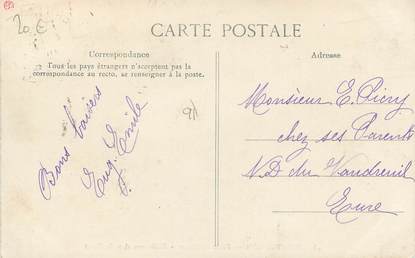 20 €
CARTE POSTALE
Correspondance
Tous les pays étrangers n'acceptent pas la
correspondance au recto, se renseigner à la poste.
Bons baisers
Eug. Emile
91
Adresse
Monsieur E. Picry
chez ses Parents
N.D. du Vaudreuil
Eure